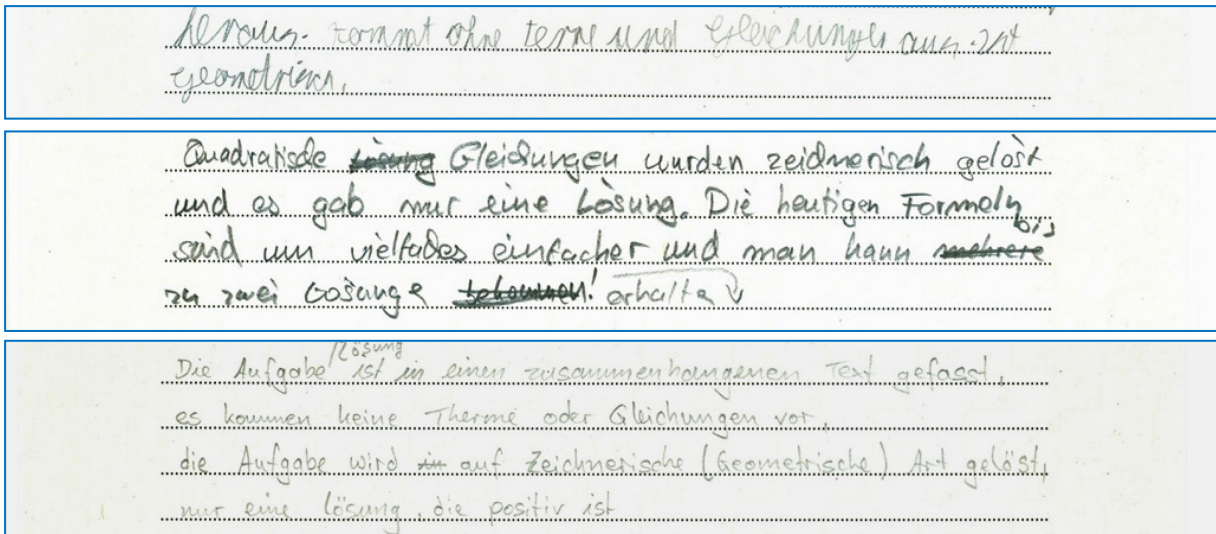 heraus. kommt ohne terme und Gleichungen aus. ist
geometrisch.
Quadratische Lösung Gleichungen wurden zeichnerisch gelöst
und es gab nur eine Lösung. Die heutigen Formeln
sind um vielfaches einfacher und man kann mehrere bis
zu zwei Lösunge bekommen! erhalten
Die Aufgabe /Lösung ist in einen zusammenhangenen Text gefasst,
es kommen keine Therme oder Gleichungen vor,
die Aufgabe wird in auf Zeichnerische (Geometrische) Art gelöst,
nur eine lösung, die positiv ist